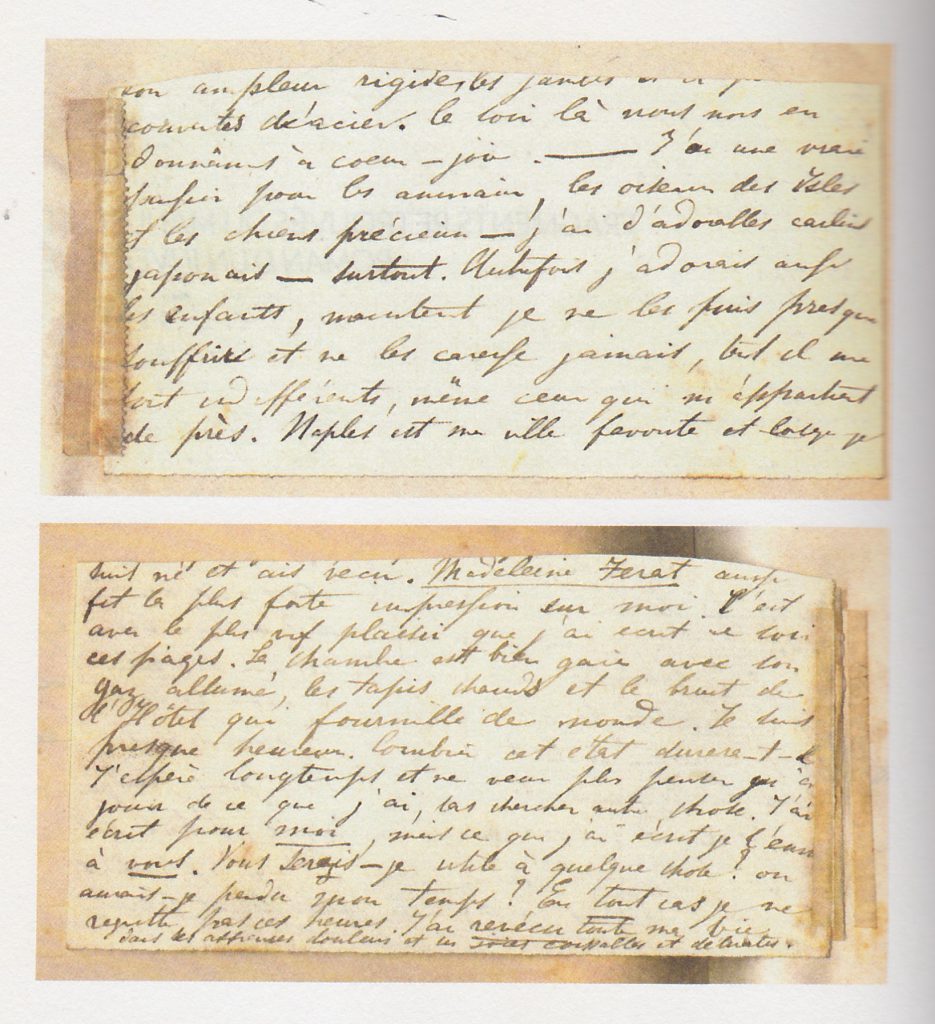 son ampleur rigide, les
couvertes d'acier. Ce soir là nous nous en
donnâmes à coeur-joie. — J'ai une vraie
pour les animaux, les oiseaux des Isles
et les chiens précieux — j'ai d'adorables carlins
japonais — surtout. Autrefois j'adorais aussi
les enfants, maintent je ne les puis presque
souffrir et ne les caresse jamais, tant il me
sont indifférents, même ceux qui m'appartient
de près. Naples est ma ville favorite et
suis né et ais vécu. Madeleine Ferat aussi
fit la plus forte impression sur moi. C'est
avec le plus vif plaisir que j'ai écrit ce soir
ces pages. La chambre est bien gaie avec son
gaz allumé, les tapis chauds et le bruit de
l'Hôtel qui fourmille de monde. Je suis
presque heureux. Combien cet état durera-t-il
J'espère longtemps et ne veux plus penser qu'à
jouir de ce que j'ai, sans chercher autre chose. J'ai
écrit pour moi, mais ce que j'ai écrit je l'envoie
à vous. Vous serais-je utile à quelque chose? ou
aurais-je perdu mon temps? En tout cas je ne
regrette pas ces heures. J'ai revécu toute ma vie
dans les affreuses douleurs et les joies et délicates.